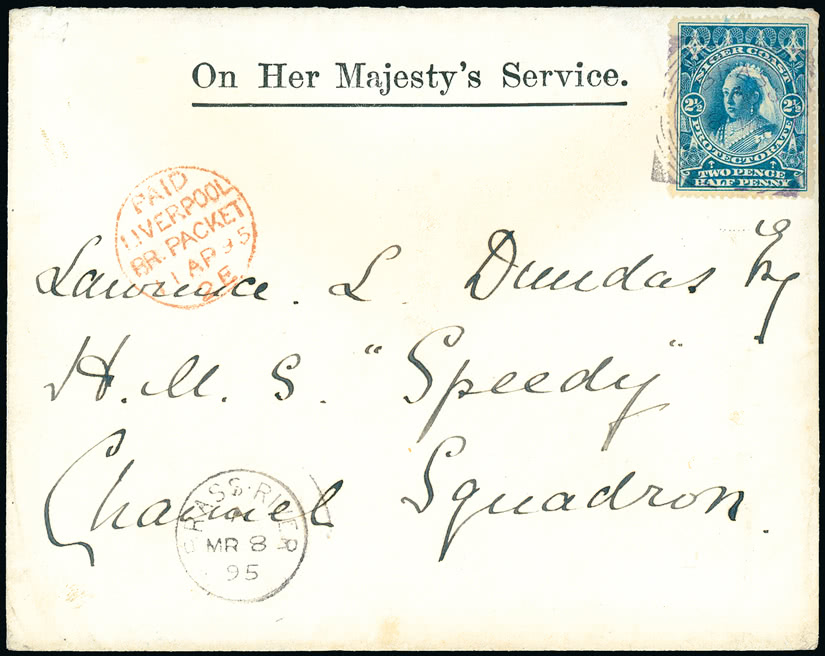 On Her Majesty's Service.
NIGER COAST
2½ 2½
PROTECTORATE
TWO PENCE
HALF PENNY
PAID
LIVERPOOL
BR. PACKET
1 AP 95
2E
Lawrence. L. Dundas Esq
H. M. S. "Speedy"
Channel Squadron.
BRASS·RIVER
MR 8
95